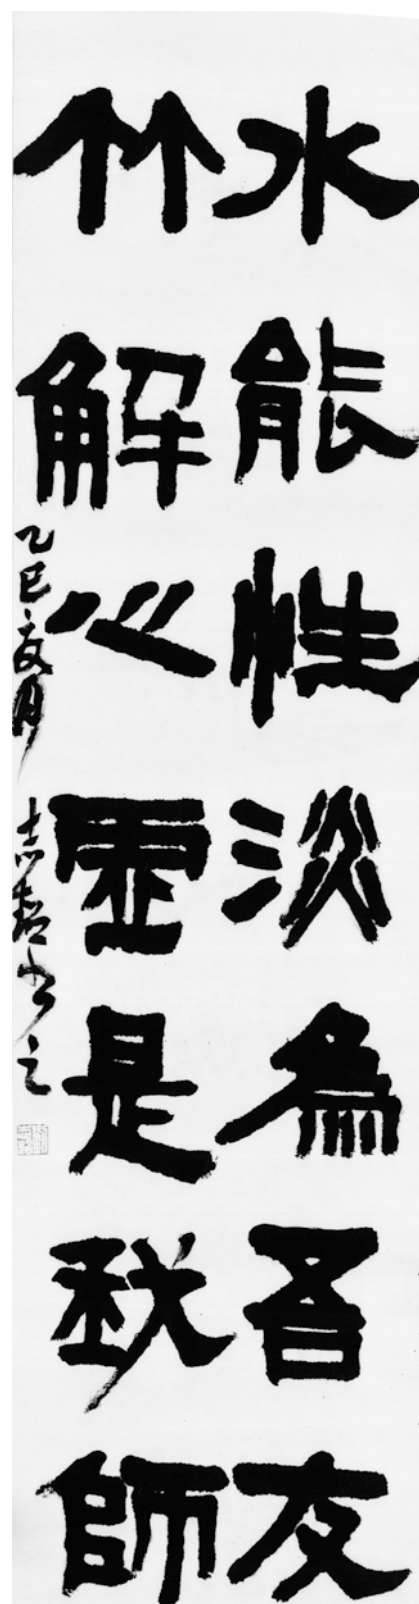 水能性淡為吾友
竹解心虛是我師
乙巳夏月 志哲書之